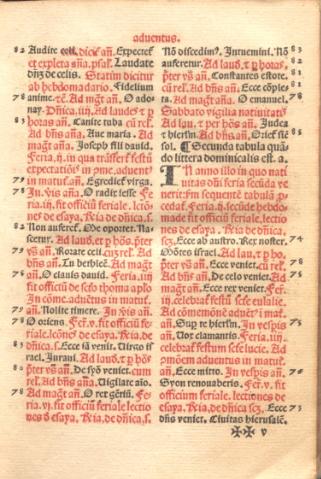 aduentus.
82 Audire celi. dicit añ. Expectetʳ
et expleta sña. psal. Laudate
dñz de celis. Statim dicitur
ab hebdomadario. Fidelium
78 anime. rē. Ad magt añ. O ado-
nay. Dñica. iiij. Ad laudes ⁊ p
79 horas añ. Canite tuba cū rel.
Ad bñs añ. Aue maria. Ad
magt añ. Joseph fili dauid.
Feria. ij. in qua trāsfert festū
expectatiōis in
79 in matuť. añ. Egredieť virga.
78 In vīs añ O radix iesse Fe-
ria. iij. fit officiū feriale. lectio
nes de esaya. Rña de dñica. s.
82 Non auferetʳ. Me oportet. Na-
scetur. Ad laud. et p hōs. pter
79 vīs añ. Rorate celi. cū rel. Ad
82 ad bñs añ. Tu bethleē. Ad magt
78 añ. O clauis dauid. Feria. iiij
fit officiū de scto thoma aplo
In cōme. aduētus in matuť
79 añ. Nolite timere. In vīs añ.
78 O oriens. Fer. v. fit officiū fe-
riale. lectiōes de esaya. Rña de
dñica. s. Ecce iā venit. Uirgo is-
rael. Juraui. Ad laud. et p hō-
82 pter vīs añ. De syō veniet. cum
rel. Ad bñs añ. Uigilate aīo.
78 Ad magt añ. O rex gētiū. Fe-
ria. vj. fit officiū feriale lectio
nes de esaya. Rña de dñica. s.
Nō discedim⁹. Intuemini. Nō 83
auferetur. Ad laud. et p horas.
pter vīs añ. Constantes estote. 83
cū rel. Ad bñs añ. Ecce cōple-
ta. Ad magt añ. O emanuel. 78
Sabbato vigilia natiuitatis
Ad lau. et p horas añ. Judea 83
⁊ hierlm. Ad bñs añ. Orieť sic
sol. ¶ Secunda tabula quā-
do littera dominicalis est. a.
IN anno illo in quo nati
uitas dñi feria secūda ve
nerit: fm sequentē tabulā p-
cedaʳ. Feria. ij. secūde hebdo-
made fit officiū feriale. lectio-
nes de esaya. Rña de dñica.
scz. Ecce ab austro. Rex noster. 74
Mōtes israel. Ad laud. et p
hōs añ. Ecce veniet. cū rel. 76
Ad bñs añ. De celo veniet. Ad
magt añ. Ecce rex veniet. Fer.
iij. celebratʳ festū scte eulalie.
Ad comemōnē aduēt⁹ i mat.
añ. Sup te hierlm. In vespis 75
añ. Uox clamantis. Feria. iiij.
celebratʳ festum scte lucie. Ad
cōmemōem aduentus in matuť.
añ. Ecce mitto. In vespis añ. 76
Syon renouaberis. Fer. v. fit
officium feriale. lectiones de
esaya. Rña de dñica. scz. Ecce 75
dñs veniet. Ciuitas hierusalē.
✠✠ v